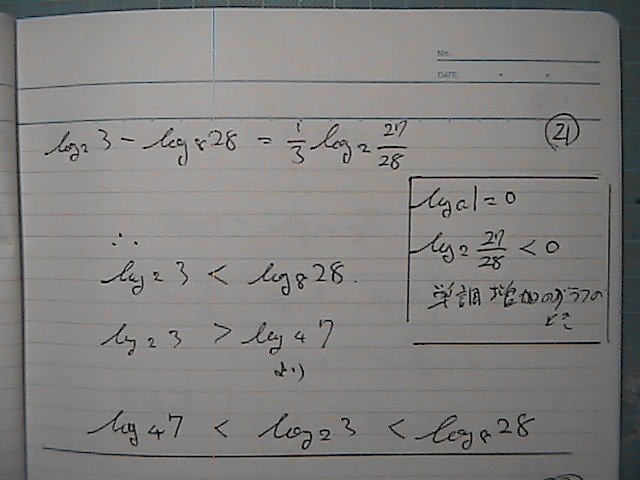 No.
DATE
log₂3 − log₈28 = 1/3 log₂ 27/28
㉑
logₐ1 = 0
log₂ 27/28 < 0
単調増加のグラフの
とき
∴
log₂3 < log₈28.
log₂3 > log₄7
より
log₄7 < log₂3 < log₈28